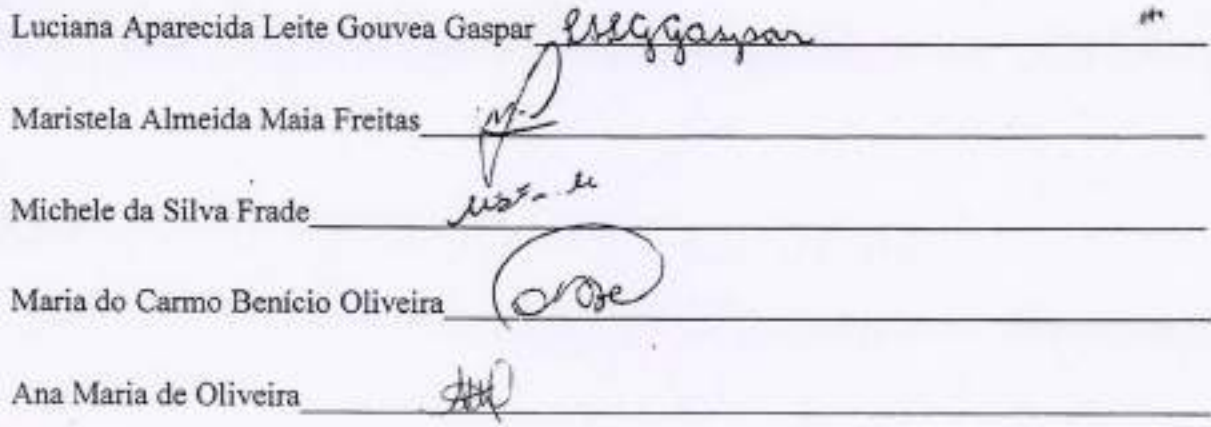 Luciana Aparecida Leite Gouvea Gaspar LALGGaspar
Maristela Almeida Maia Freitas
Michele da Silva Frade
Maria do Carmo Benício Oliveira
Ana Maria de Oliveira